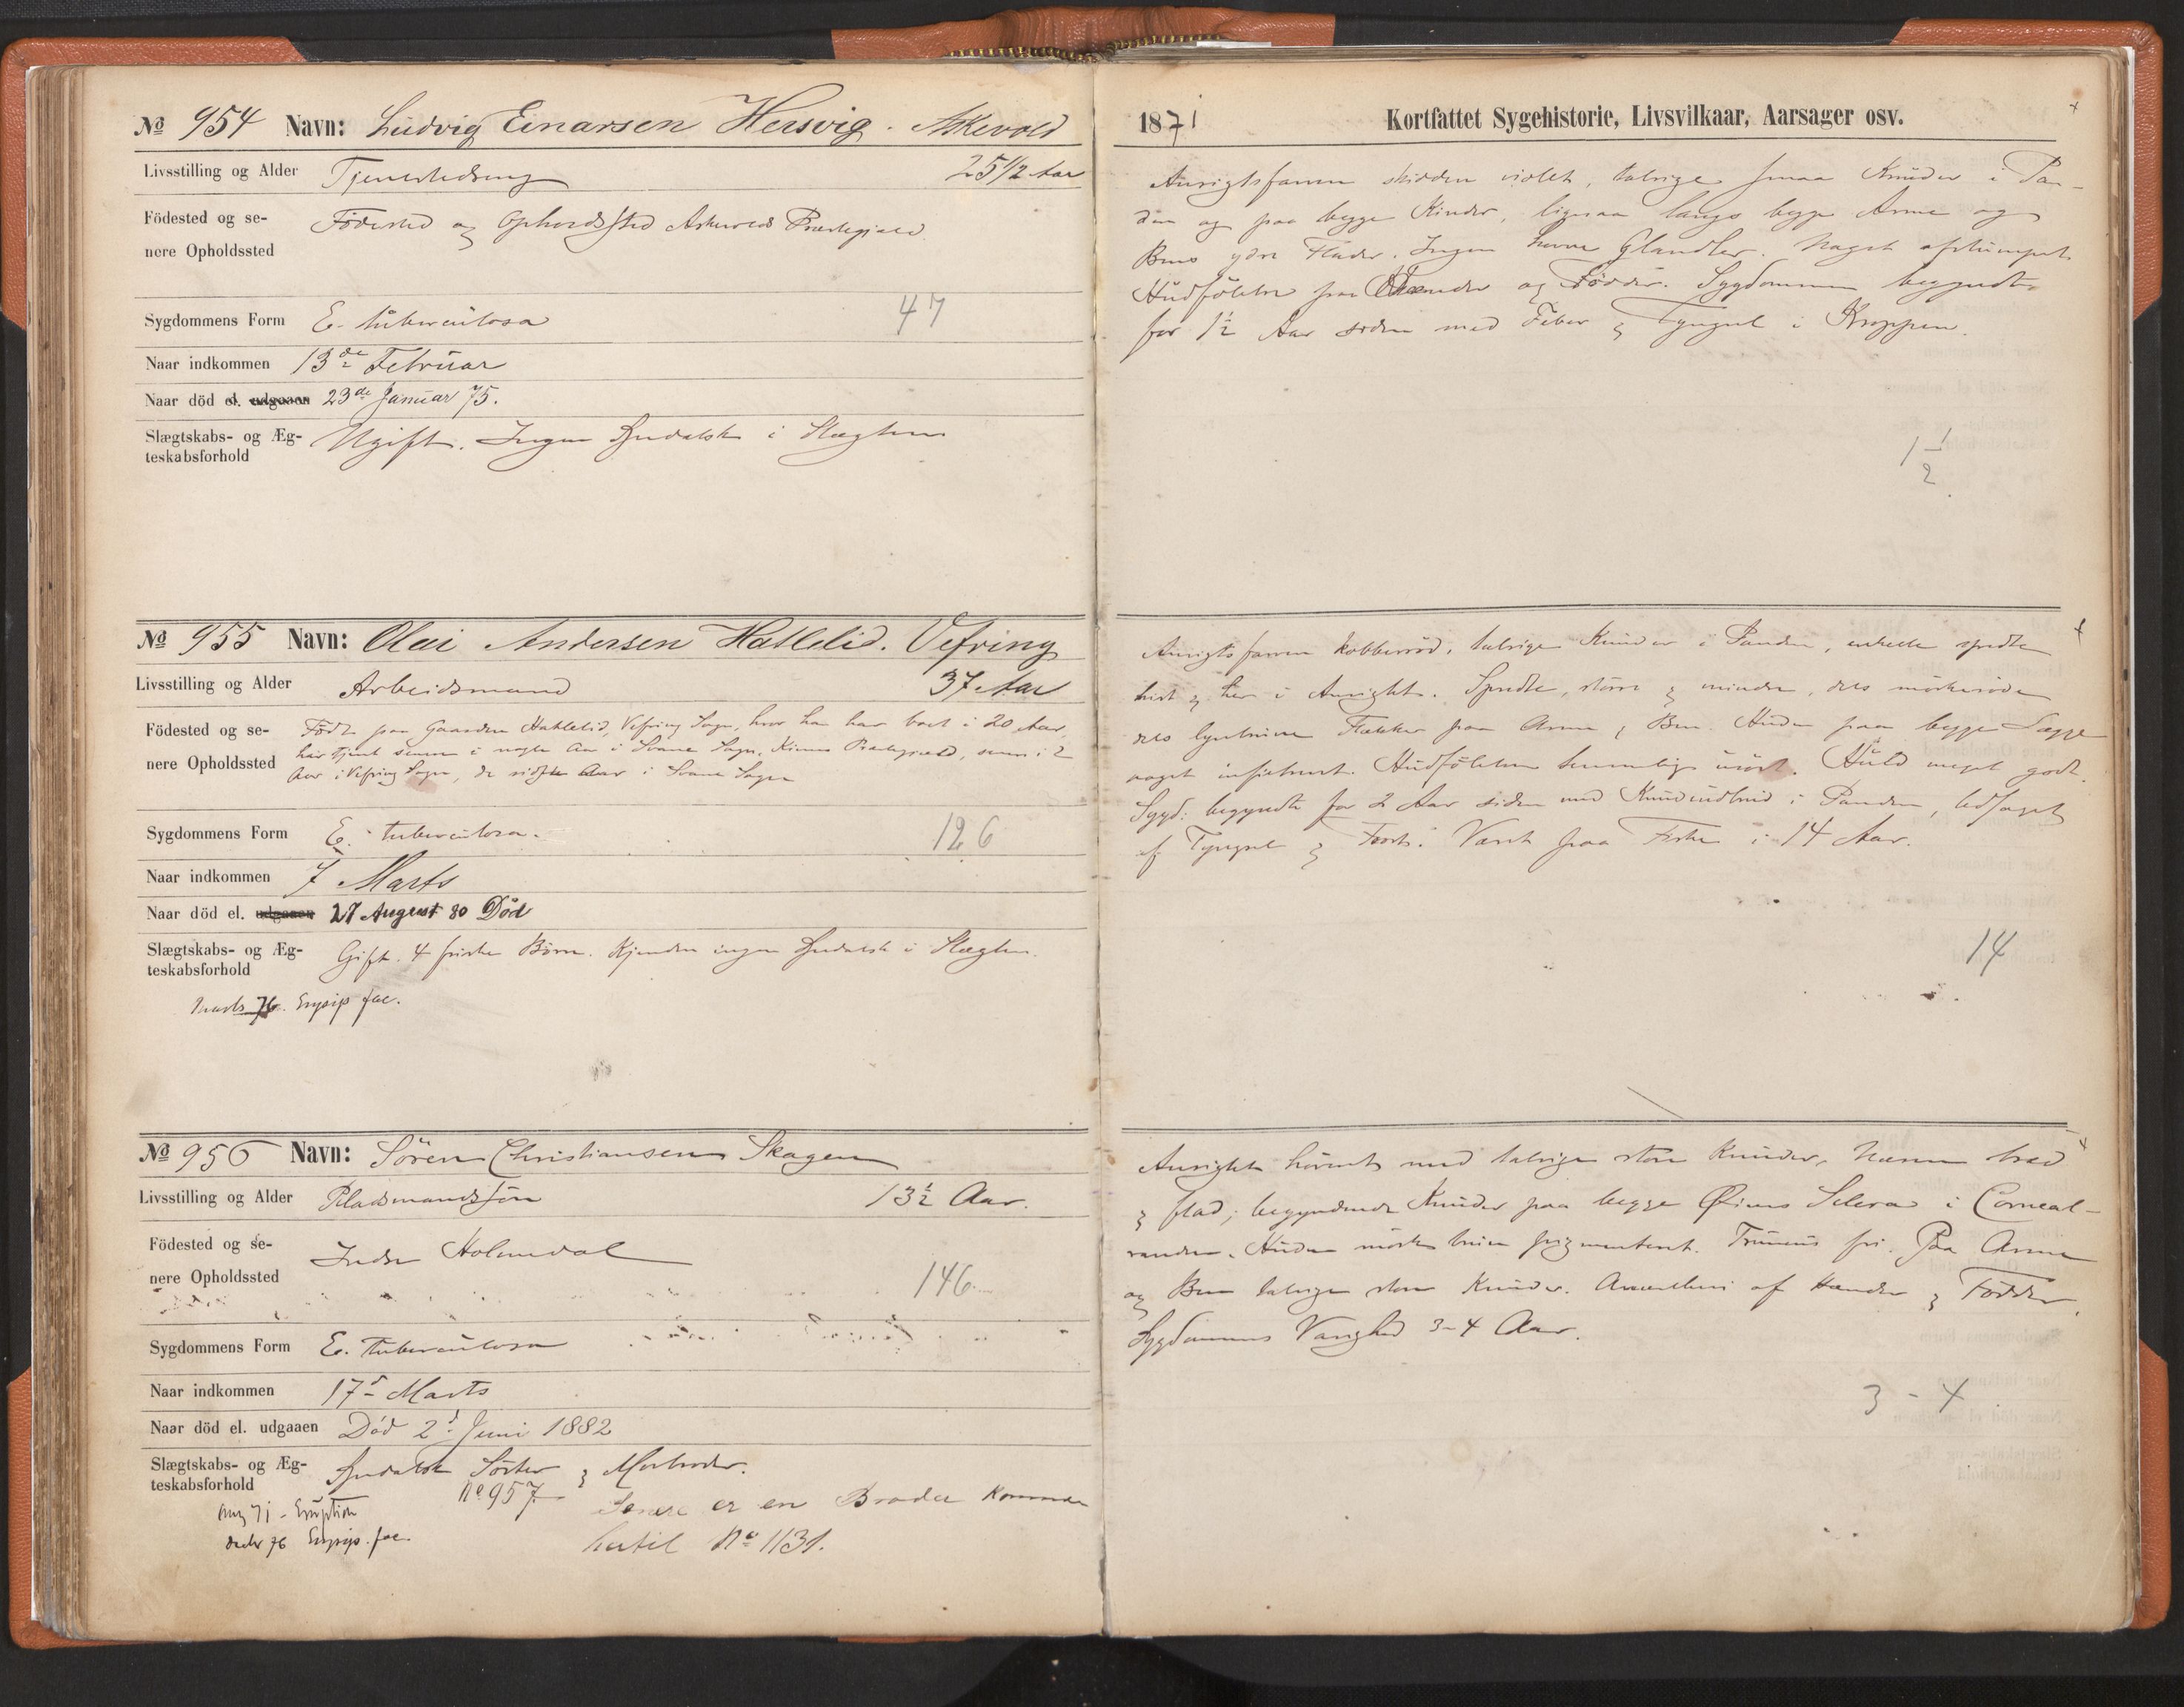 № 954 Navn: Ludvig Einarsen Hersvig. Askevold
Livsstilling og Alder Tjenestedreng 25 1/2 Aar
Födested og senere Opholdssted Födested og Opholdssted Askevolds Præstegjeld
Sygdommens Form E. tuberculosa 47
Naar indkommen 13de Februar
Naar död el. udgaaen 23de Januar 75.
Slægtskabs- og Ægteskabsforhold Ugift. Ingen Spedalske i Slægten
№ 955 Navn: Olai Andersen Hatlelid. Vefring
Livsstilling og Alder Arbeidsmand 37 Aar
Födested og se- Född paa Gaarden Hatlelid, Vefring Sogn, hvor han har boet i 20 Aar,
har tjent senere i nogle Aar i Svanø Sogn, Kinns Præstegjeld, senere i 2
nere Opholdssted Aar i Vefring Sogn, de sidste Aar i Svanø Sogn
Sygdommens Form E. tuberculosa. 126
Naar indkommen 7 Marts
Naar död el. udgaaen 27 August 80 Död
Slægtskabs- og Ægteskabsforhold Gift. 4 friske Börn. Kjender ingen Spedalske i Slægten.
Marts 76. Erysip fac.
№ 956 Navn: Sören Christiansen Skagen
Livsstilling og Alder Pladsmandssön 13 1/2 Aar.
Födested og senere Opholdssted Indre Holmedal
146
Sygdommens Form E. tuberculosa
Naar indkommen 17de Marts
Naar död el. udgaaen Död 2d Juni 1882
Slægtskabs- og Ægteskabsforhold Spedalsk Söster og Morbroder.
No 957
Senere er en Broder kommen
hertil No 1131.
Aug 71 - Eruption
Decbr 76 Erysip. fac.
1871 Kortfattet Sygehistorie, Livsvilkaar, Aarsager osv.
Ansigtsfarven skidden violet, talrige smaa Knuder i Pan-
den og paa begge Kinder, ligesaa langs begge Arme og
Bens ydre Flader. Ingen hovne Glandler. Noget afstumpet
Hudfölelse paa Hænder og Födder. Sygdommen begyndte
for 1 1/2 Aar siden med Feber og Tyngsel i Kroppen.
1 1/2
Ansigtsfarven kobberröd, talrige Knuder i Panden, enkelte spredte
hist og her i Ansigtet. Spredte, större og mindre, dels mörkeröde
dels lysebrune Flekker paa Arme og Ben. Huden paa begge Lægge
noget infiltreret. Hudfölelsen temmelig urört. Huld meget godt.
Sygd: begyndte for 2 Aar siden med Knudeudbrud i Panden, ledsaget
af Tyngsel og Frost. Været paa Fiske i 14 Aar.
14
Ansigtet hovent med talrige store Knuder, Næsen bred
og flad; begyndende Knuder paa begge Öines Sclera i Corneal-
randen. Huden mörk brun pigmenteret. Truncus fri. Paa Arme
og Ben talrige store Knuder. Anæsthesi af Hænder og Födder.
Sygdommens Varighed 3-4 Aar.
3 - 4